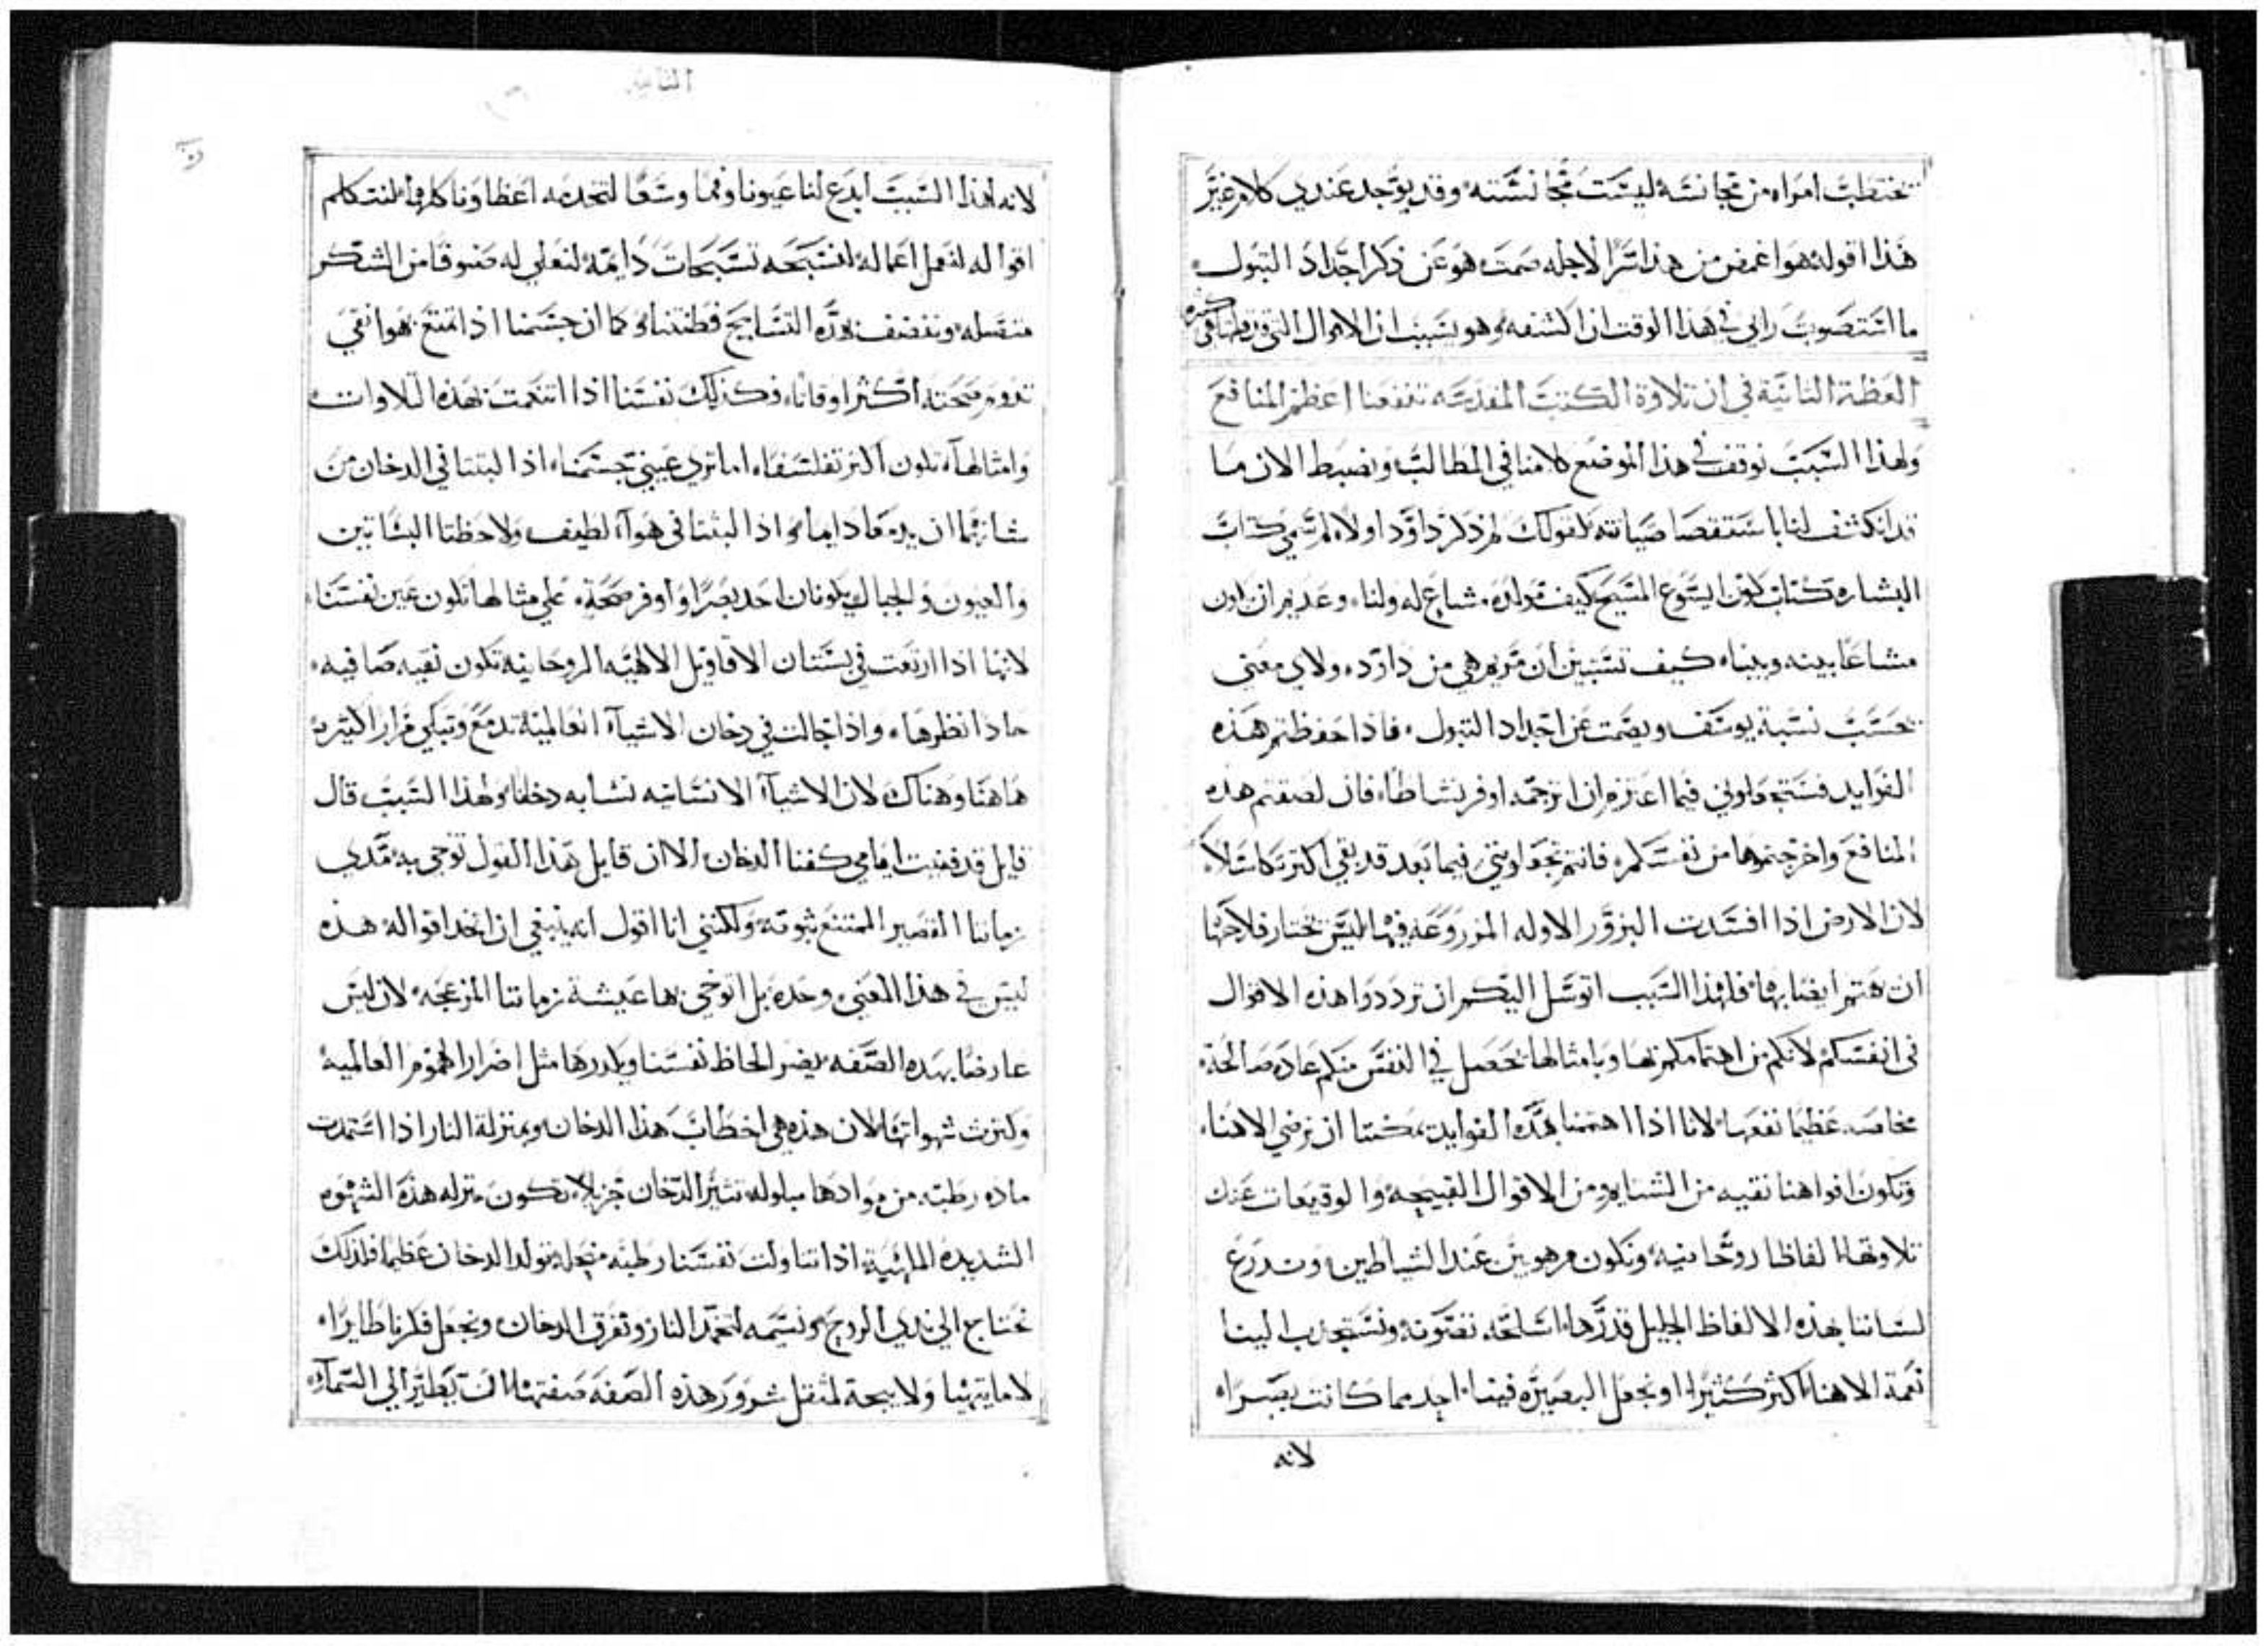 تختطب امراه من مجانسة ليست مجانسته وقد يوجد عندي كلام غير
هذا اقوله هو اغمض من هذا سرا لاجله صمت هو عن ذكر اجداد البتول
ما استصوب رايي في هذا الوقت ان اكشفه وهو بسبب ان الاقوال التي
كثيره
العظة الثانية في ان تلاوة الكتب المقدسه تنفعنا اعظم المنافع
ولهذا السبب نوقف في هذا الموضع كلامنا في المطالب ونضبط الان ما
قد انكشف لنا باستقصا صيانته كقولك لم ذكر داوود اولا لم سمي كتاب
البشاره كتاب كون ايسوع المسيح كيف مولده مشاع له ولنا وعديم ان يكون
مشاعا بيننه وبيننا كيف تستبين ان مريم هي من داود ولاي معني
تحسب نسبة يوسف ويصمت عن اجداد البتول فاذا حفظتم هذه
الفوايد فستجعلوني فيما اعتزم ان اترجمه اوفر نشاطا فان لصقتم هذه
المنافع واخرجتموها من نفسكم فانتم تجعلونني فيما بعد قد بقي اكثر تكاسلا
لان الارض اذا افسدت البزور الاوله المزروعه فيها ليس يختار فلاحها
ان يهتم ايضا بها فلهذا السبب اتوسل اليكم ان ترددوا هذه الاقوال
في انفسكم لانكم من اهتمامكم بها وبامثالها تحصل في النفس منكم عاده صالحة
عظيما نفعها لاننا اذا اهتممنا بهذه الفوايد يمكننا ان نرضي الاهنا
وتكون افواهنا نقيه من الشتايم ومن الاقوال القبيحه والوقيعات عند
تلاوتها الفاظا روحانيه ونكون مرهوبين عند الشياطين وندرع
لساننا بهذه الالفاظ الجليل قدرها اسلحة ونستجذب الينا
نعمة الاهنا اكثر كثيرا ونجعل البصيره فينا احد مما كانت بصرا
لانه
الثانيه
لانه لهذا السبب ابدع لنا عيونا وفما وسمعا لتخدمه اعضاونا كلها لنتكلم
اقواله لنعمل اعماله لنسبحه تسبيحات دايمه لنعلي له صنوفا من الشكر
متصله وننضف بهذه التسابيح فطنتنا وكما ان جسمنا اذا تمتع بهوا نقي
تدوم صحته اكثر اوقاتا فكذلك نفسنا اذا تنعمت بهذه التلاوات
وامثالها تكون اكثر تفلسفا اما تري عيني جسمنا اذا لبثتا في الدخان من
شانهما ان يدمعا دايما واذا لبثتا في هوآ لطيف ولاحظتا البساتين
والعيون والجبال يكونان احد بصرا واوفر صحة علي مثالها تكون عين نفسنا
لانها اذا ارتعت في بستان الاقاويل الالهيه الروحانيه تكون نقيه صافيه
حادا نظرها واذا جالت في دخان الاشيآ العالمية تدمع وتبكي مرارا كثيره
هاهنا وهناك لان الاشيآ الانسانيه تشابه دخانا ولهذا السبب قال
قايل قد فنيت ايامي كفنا الدخان الا ان قايل هذا القول توخي به مدي
زماننا القصير الممتنع ثبوته ولكنني انا اقول انه ينبغي ان نتخد اقواله هذه
ليس في هذا المعني وحده بل اتوخي بها عيشة زماننا المزعجه لان ليس
عارضا بهذه الصفه يضر الحاظ نفسنا ويكدرها مثل اضرار الهموم العالميه
وكثرت شهواتها لان هذه هي احطاب هذا الدخان وبمنزلة النار اذا استمدت
ماده رطبه من موادها مبلوله تثير الدخان جزيلا تكون منزله هذه الشهوه
الشديده اللهبيه اذا تناولت نفسنا رطبه منحله تولد الدخان عظيما فلذلك
نحتاج الي ندي الروح ونسيمه لتخمد النار وتفرق الدخان وتجعل فكرنا طايرا
لا ما يتهيا ولا يتجه لمثقل شرور هذه الصفه صفتها ان يطير الي السمآ